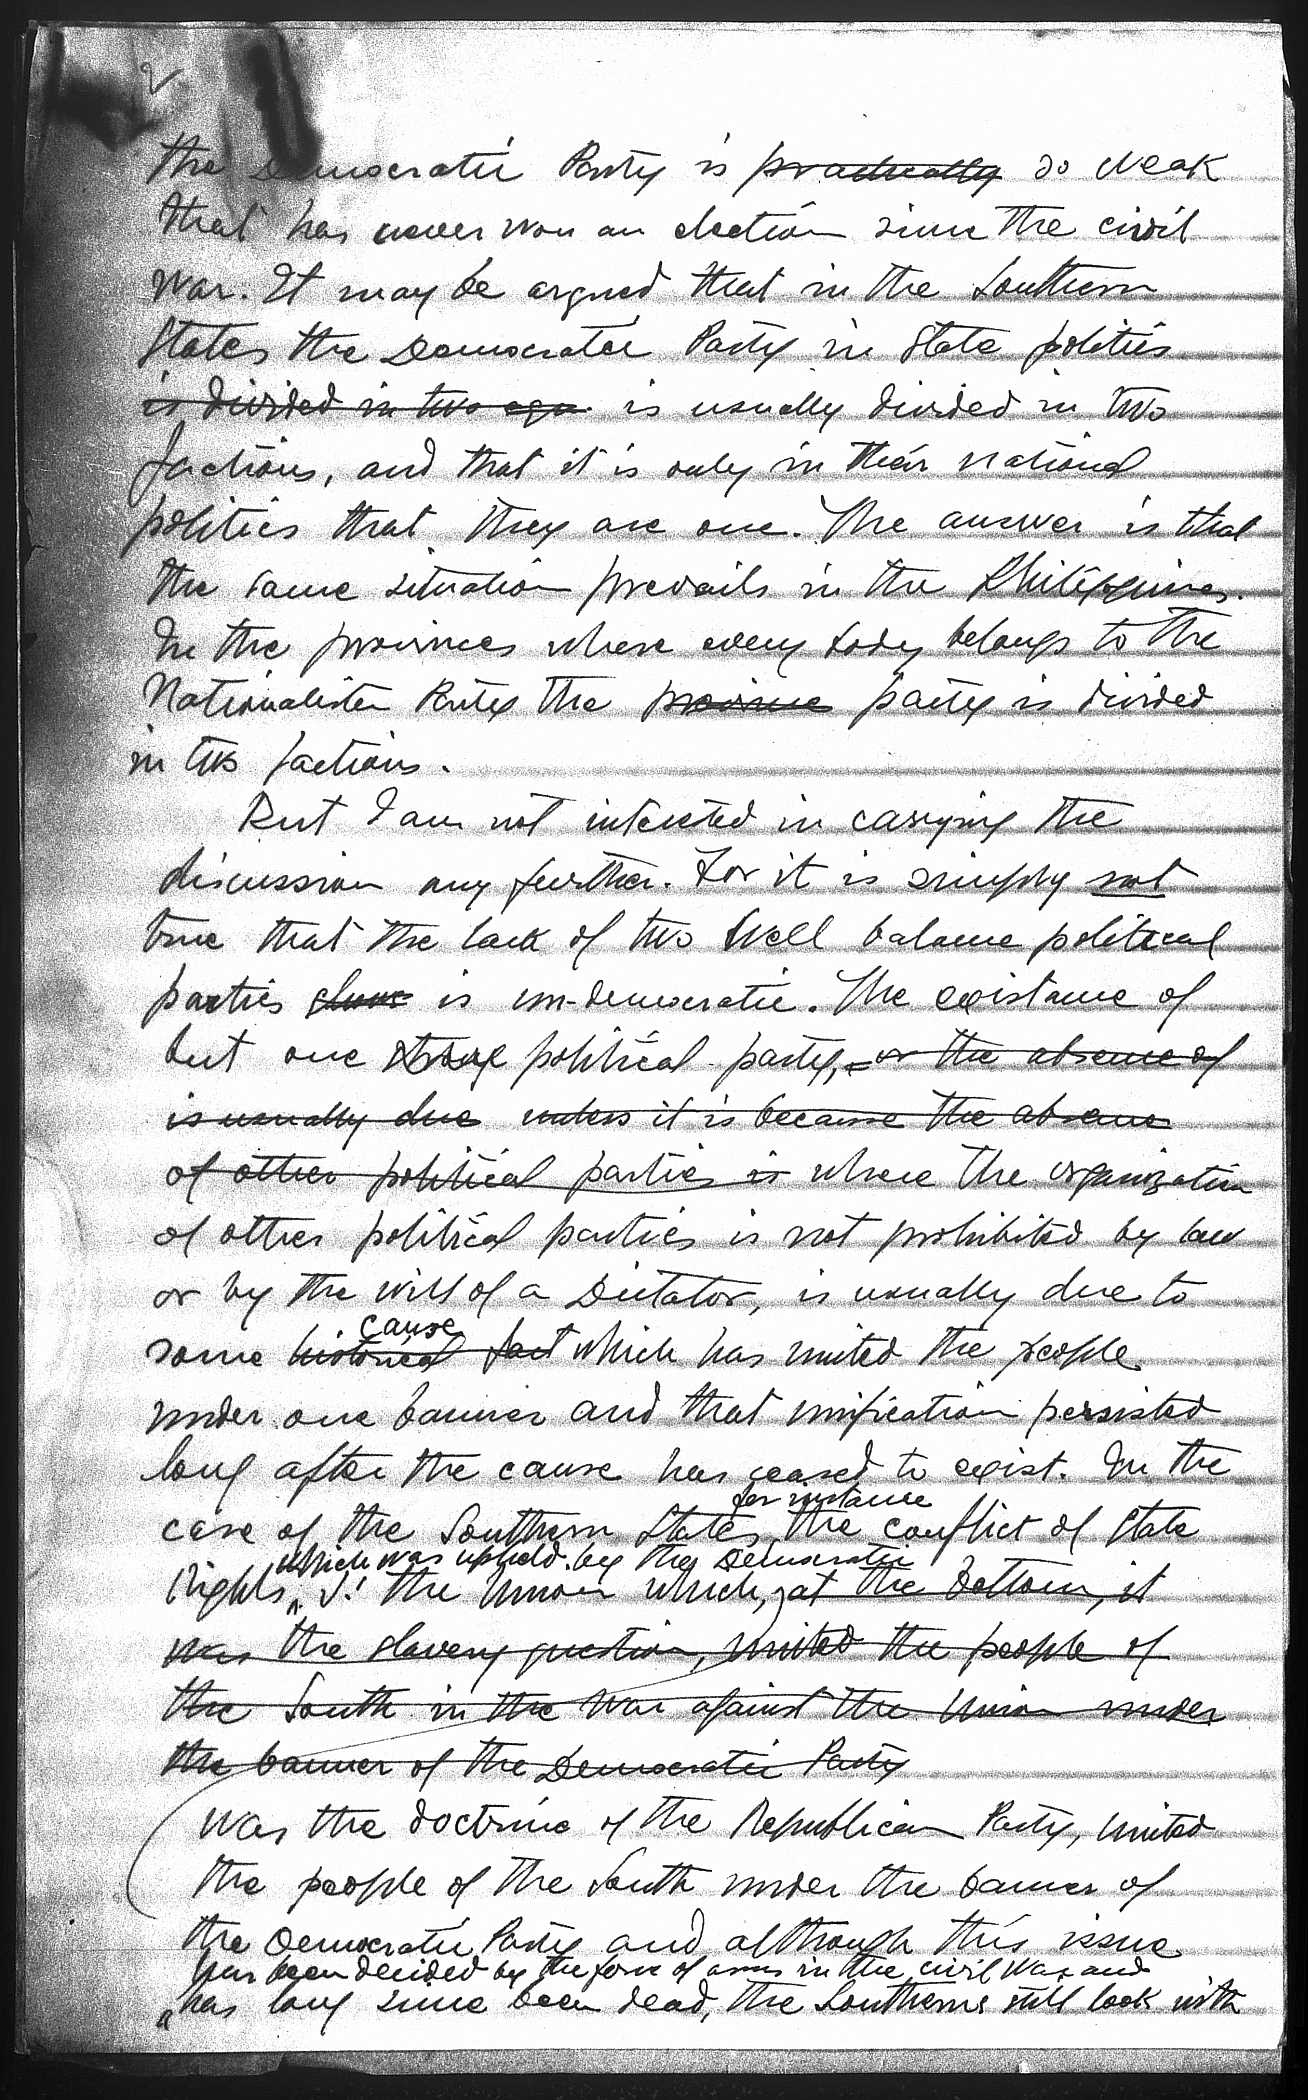 2
the Democratic Party is practically so weak
that has never won an election since the civil
war. It may be argued that in the Southern
States the Democratic Party in State politics
is divided in two is usually divided in two
factions, and that it is only in their national
politics that they are one. The answer is that
the same situation prevails in the Philippines.
In the provinces where every body belongs to the
Nationalista Party the province party is divided
in two factions.
But I am not interested in carrying the
discussion any further. For it is simply not
true that the lack of two well balance political
parties is un-democratic. The existance of
but one strong political party, or the absence of
is usually due unless it is because the absence
of other political parties is where the organization
of other political parties is not prohibited by law
or by the will of a Dictator, is usually due to
cause
some historical fact which has united the people
under one banner and that unification persisted
long after the cause has ceased to exist. In the
for instance
case of the Southern States, the conflict of state
which was upheld by the Democratic
rights v. the Union which, at the bottom, it
was the slavery question, united the people of
the South in the war against the Union under
the banner of the Democratic Party
was the doctrine of the Republican Party, united
the people of the South under the banner of
the Democratic Party and although this issue
has been decided by the force of arms in the civil War and
has long since been dead, the Southerns still look with